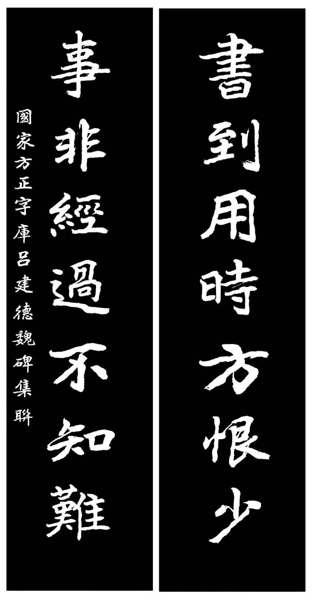 書到用時方恨少
事非經過不知難
國家方正字庫吕建德魏碑集聯